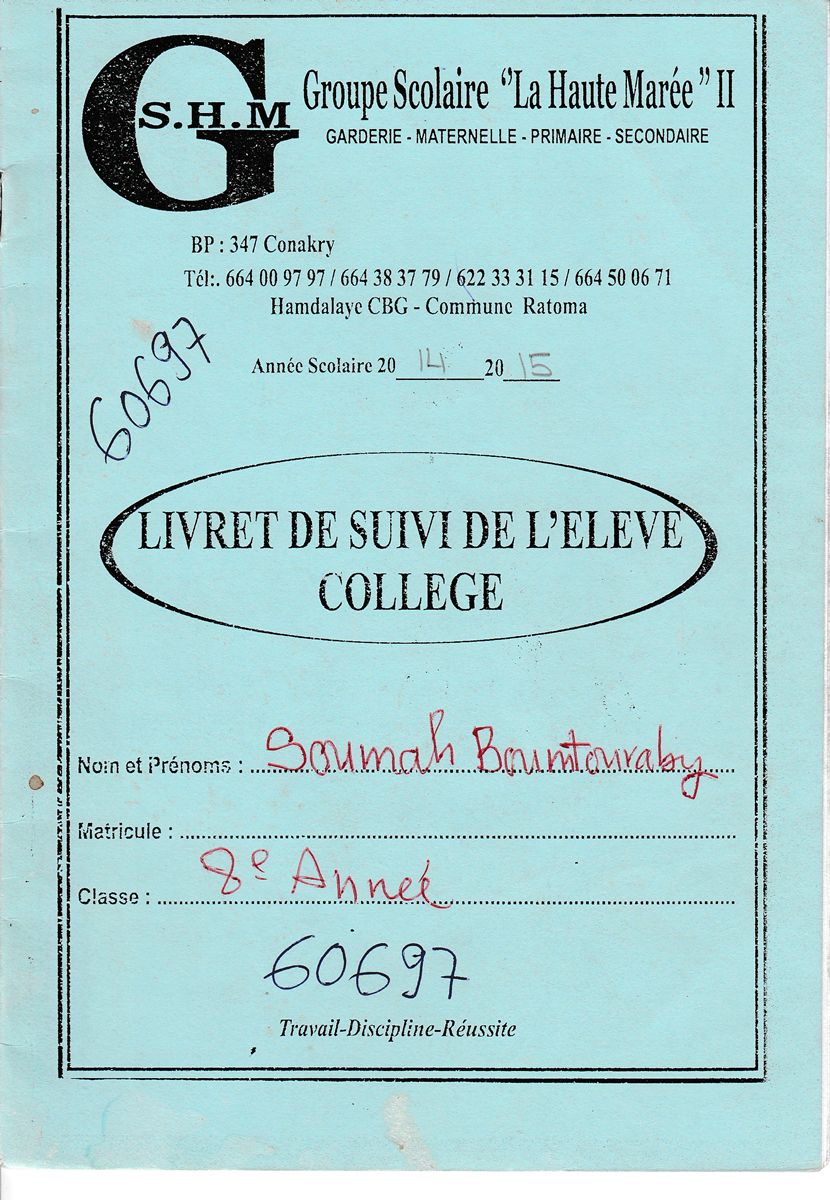 G S.H.M
Groupe Scolaire "La Haute Marée" II
GARDERIE - MATERNELLE - PRIMAIRE - SECONDAIRE
BP : 347 Conakry
Tél:. 664 00 97 97 / 664 38 37 79 / 622 33 31 15 / 664 50 06 71
Hamdalaye CBG - Commune Ratoma
60697
Année Scolaire 20 14 20 15
LIVRET DE SUIVI DE L'ELEVE
COLLEGE
Nom et Prénoms : Soumah Bountouraby
Matricule :
Classe : 8e Année
60697
Travail-Discipline-Réussite